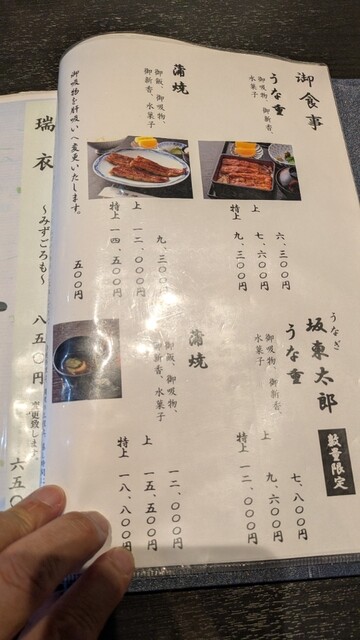 御食事
うな重
御吸物、御新香、
水菓子
六、三〇〇円
上 七、六〇〇円
特上 九、三〇〇円
蒲焼
御飯、御吸物、
御新香、水菓子
九、三〇〇
上 一二、〇〇〇円
特上 一四、五〇〇円
御吸物を肝吸いへ変更いたします。
五〇〇円
うなぎ
坂東太郎
数量限定
うな重
御吸物、御新香、
水菓子
七、八〇〇円
上 九、六〇〇円
特上 一二、〇〇〇円
蒲焼
御飯、御吸物、
御新香、水菓子
一二、〇〇〇円
上 一五、五〇〇円
特上 一八、八〇〇円
瑞衣
〜みずごろも〜
八五〇円
変更致します。
六五〇